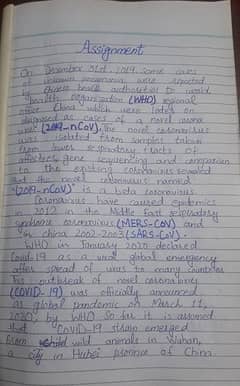 Assignment
On December 31st, 2019, some cases
of unknown pneumonia were reported
by Chinese health authorities to world
health organization (WHO) regional
office China which were later on
diagnosed as cases of a novel corona
virus (2019-nCoV). The novel coronavirus
was isolated from samples taken
from lower respiratory tracts of
affectees gene sequencing and comparison
to the existing coronavirus revealed
that the novel coronavirus named
"(2019-nCoV)" is a beta coronavirus.
Coronavirus have caused epidemics
in 2012 in the Middle East respiratory
syndrome coronavirus (MERS-CoV) and
in china 2002-2003 (SARS-CoV).
WHO in January 2020 declared
Covid-19 as a global emergency
after spread of virus to many countries
This outbreak of novel coronavirus
(COVID-19) was officially announced
as global pandemic on March 11,
2020 by WHO So far it is assumed
that CoviD-19 strain emerged
from wild animals in Wuhan,
a city in Hubei province of China.